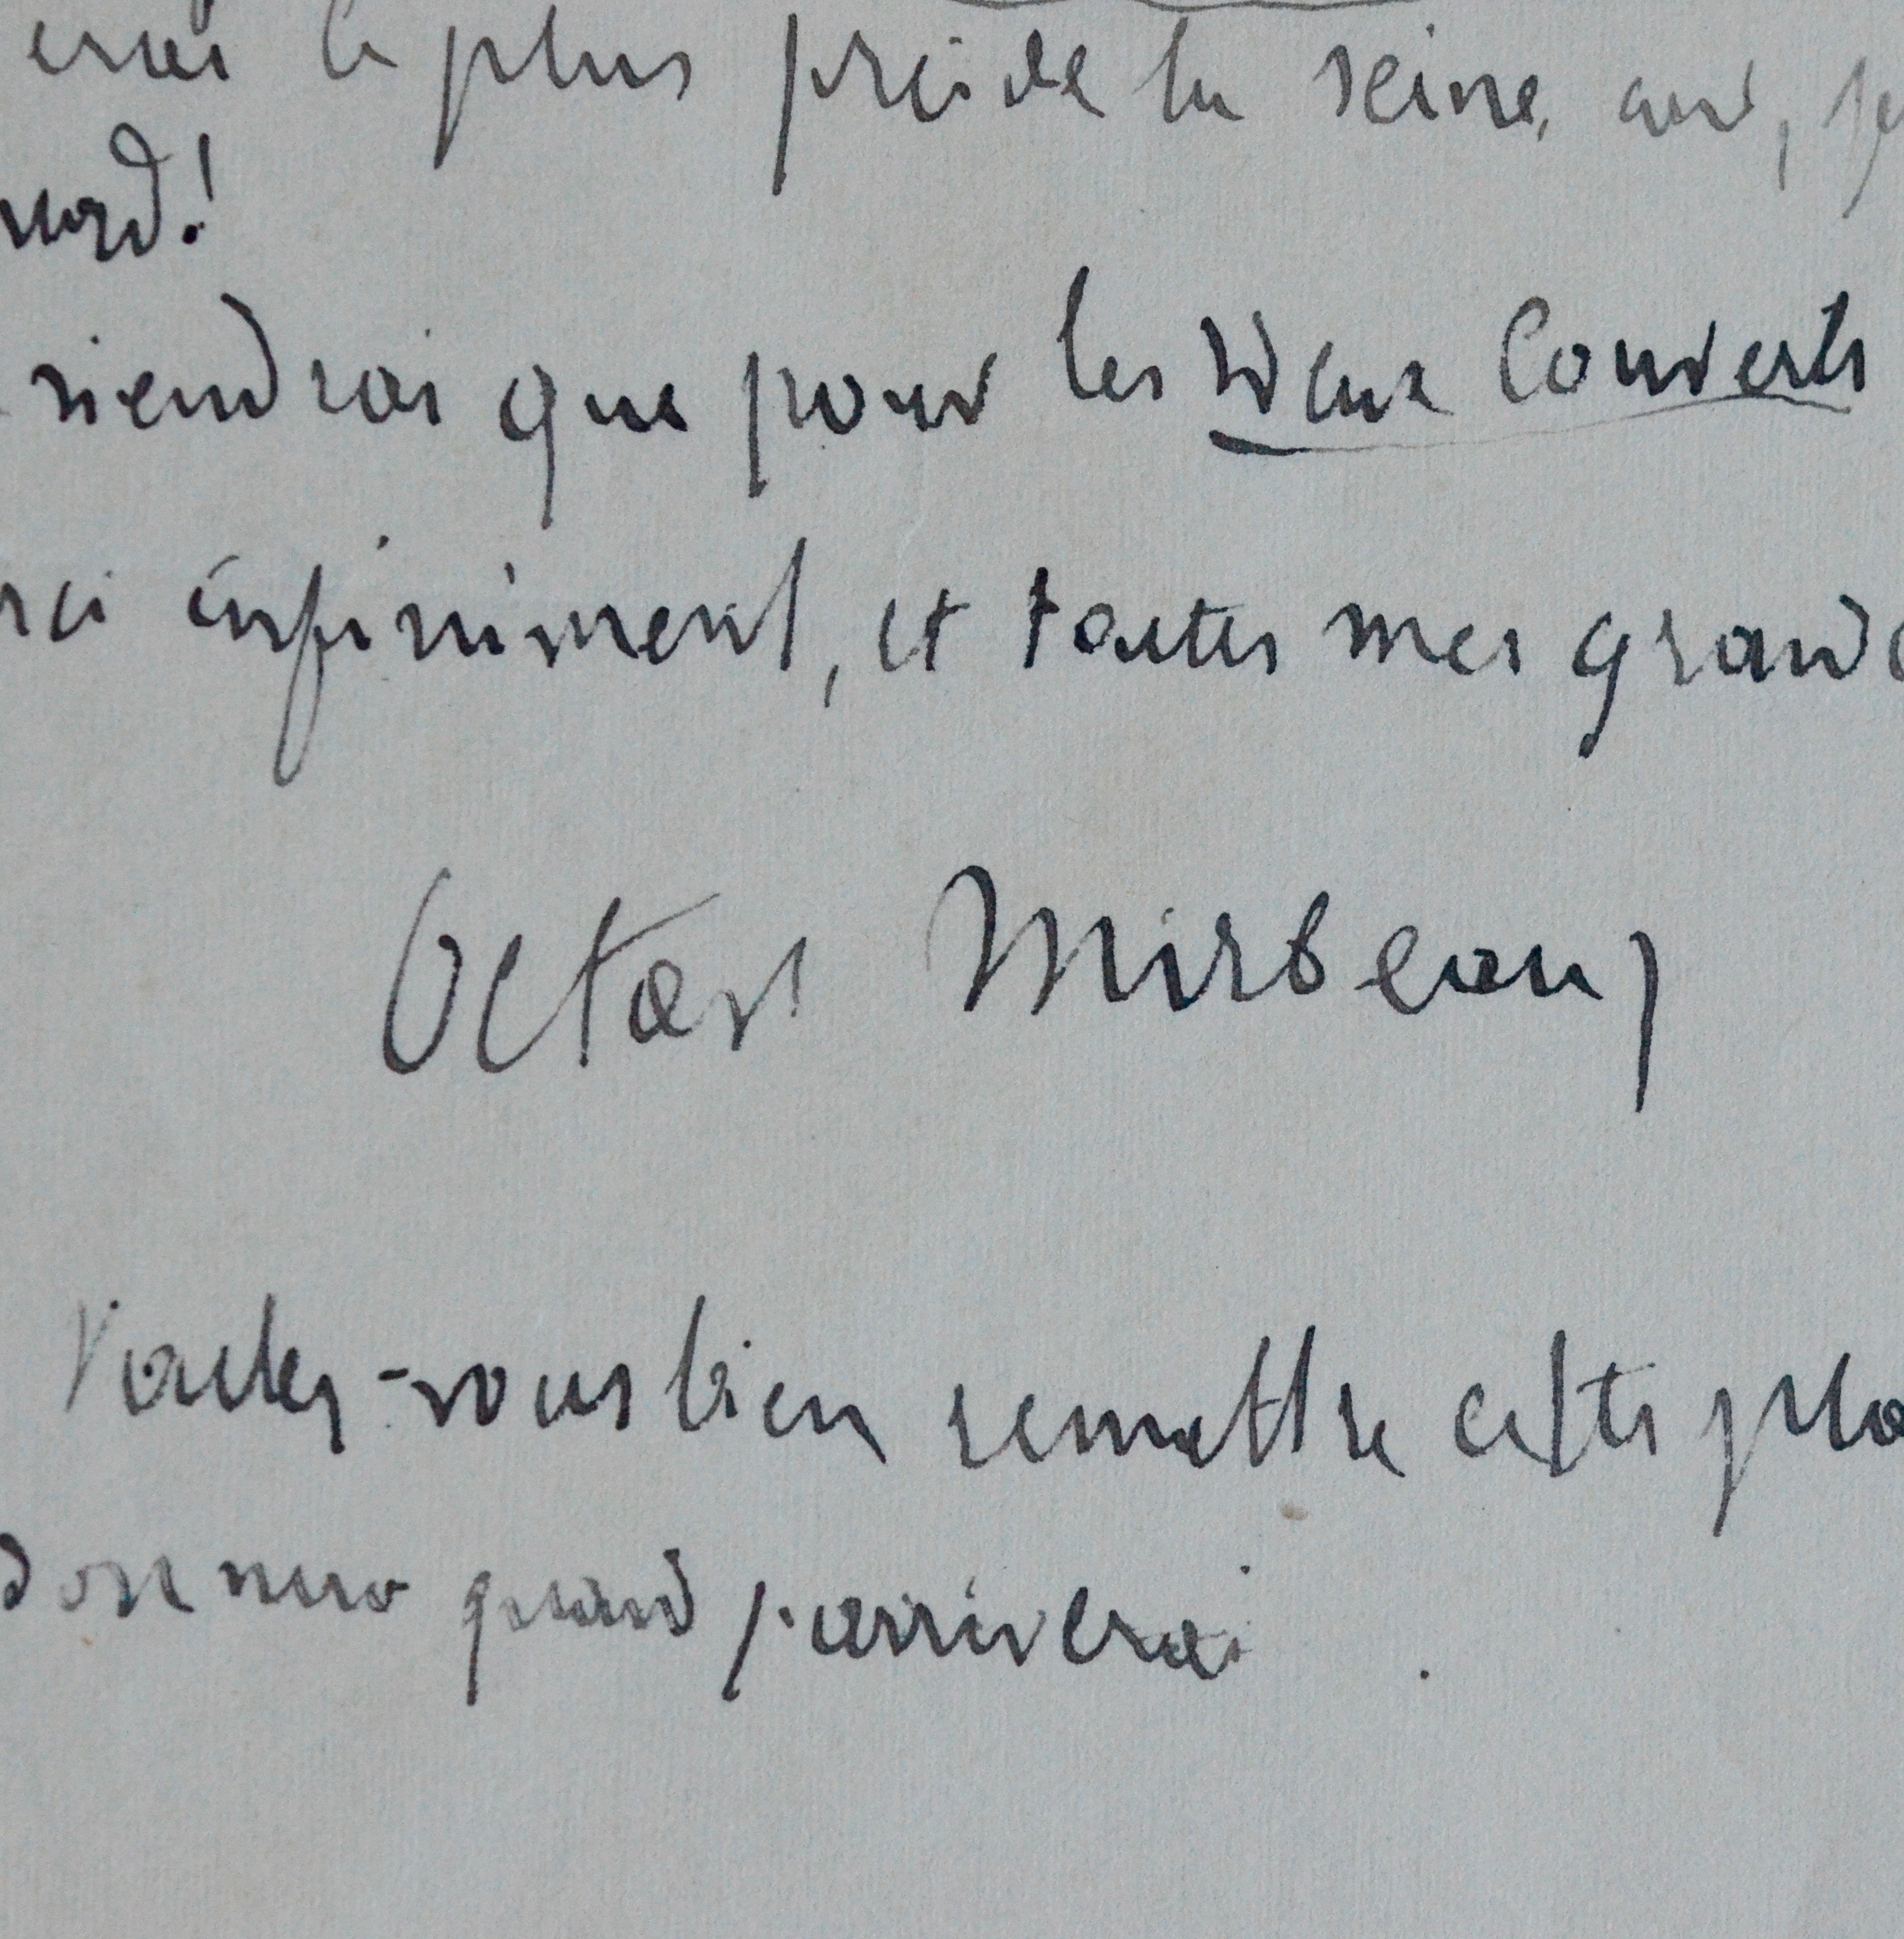 erai le plus près de la seine, car, je
nord!
viendrai que pour les Deux Couverts
rci infiniment, et toutes mes grande
Octave Mirbeau
Voulez-vous bien remettre cette pla
donnera quand j'arriverai.